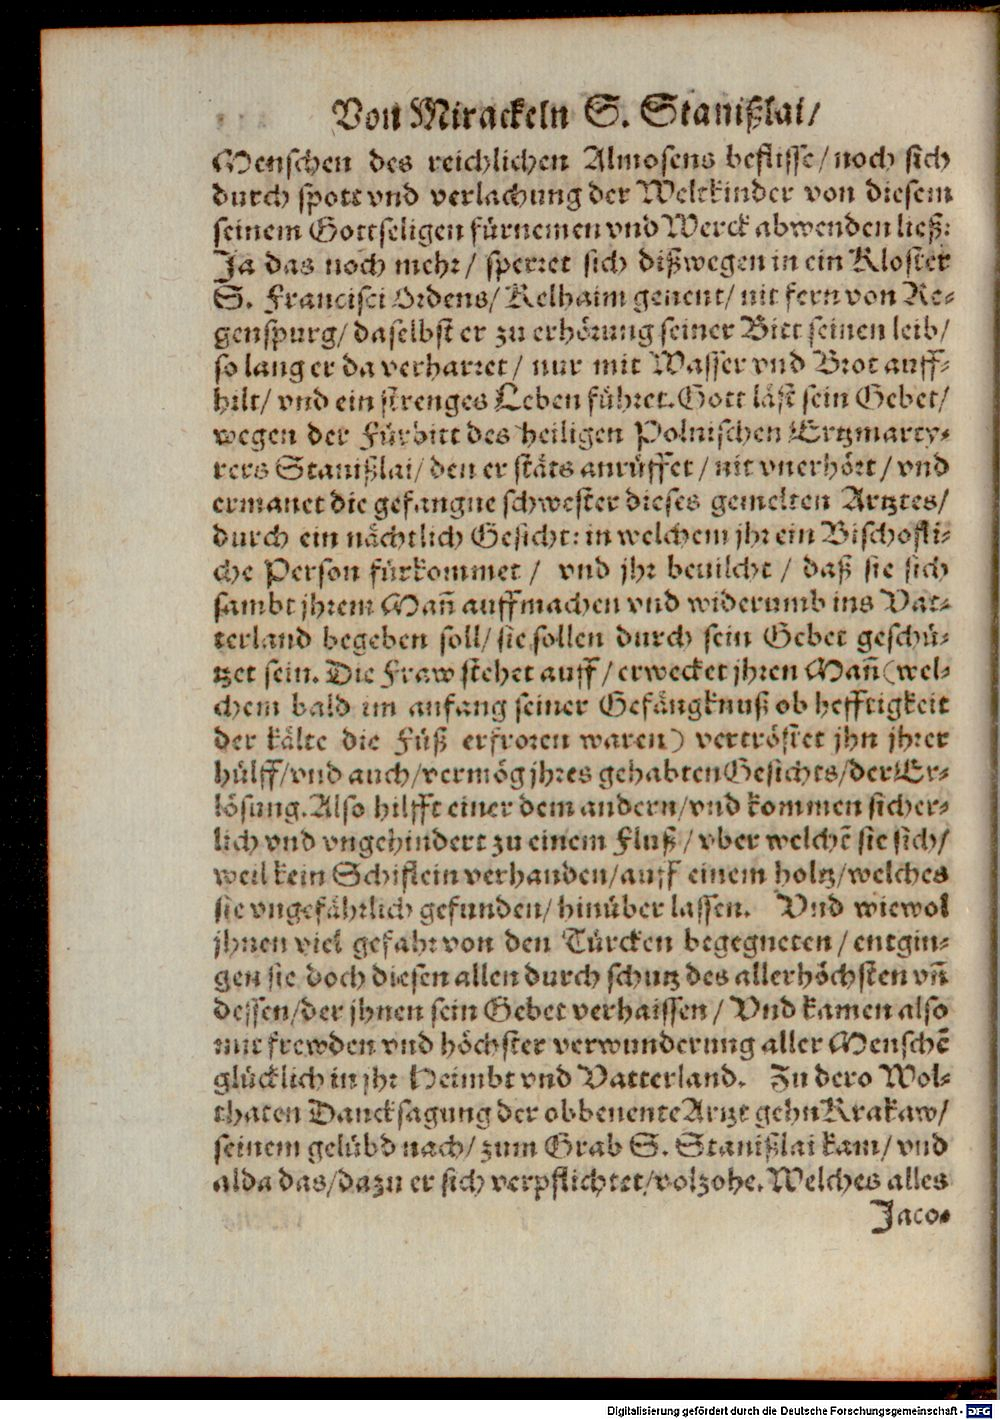 Von Mirackeln S. Stanißlai/
Menschen des reichlichen Almosens beflisse/noch sich
durch spott vnd verlachung der Weltkinder von diesem
seinem Gottseligen fürnemen vnd Werck abwenden ließ:
Ja das noch mehr/ sperret sich dißwegen in ein Kloster
S. Francisci Ordens/ Kelhaim genent/ nit fern von Re-
genspurg/ daselbst er zu erhörung seiner Bitt seinen leib/
so lang er da verharret/ nur mit Wasser vnd Brot auff-
hilt/ vnd ein strenges Leben führet. Gott läst sein Gebet/
wegen der Fürbitt des heiligen Polnischen Ertzmarty-
rers Stanißlai/ den er stäts anrüffet/ nit vnerhört/ vnd
ermanet die gefangne schwester dieses gemelten Artztes/
durch ein nächtlich Gesicht: in welchem jhr ein Bischofli-
che Person fürkommet/ vnd jhr beuilcht/ daß sie sich
sambt jhrem Mañ auffmachen vnd widerumb ins Vat-
terland begeben soll/ sie sollen durch sein Gebet geschü-
tzet sein. Die Fraw stehet auff/ erwecket jhren Mañ (wel-
chem bald im anfang seiner Gefängknuß ob hefftigkeit
der kälte die Füß erfroren waren) vertröstet jhn jhrer
hülff/vnd auch/vermög jhres gehabten Gesichts/der Er-
lösung. Also hilfft einer dem andern/vnd kommen sicher-
lich vnd vngehindert zu einem Fluß/ vber welchē sie sich/
weil kein Schiflein verhanden/auff einem holtz/welches
sie vngefährlich gefunden/ hinüber lassen. Vnd wiewol
jhnen viel gefahr von den Türcken begegneten/ entgin-
gen sie doch diesen allen durch schutz des allerhöchsten vñ
dessen/der jhnen sein Gebet verhaissen/ Vnd kamen also
mit frewden vnd höchster verwunderung aller Menschē
glücklich in jhr Heimbt vnd Vatterland. Zu dero Wol-
thaten Dancksagung der obbenente Artzt gehn Krakaw/
seinem gelübd nach/ zum Grab S. Stanißlai kam/ vnd
alda das/dazu er sich verpflichtet/volzohe. Welches alles
Jaco-
Digitalisierung gefördert durch die Deutsche Forschungsgemeinschaft - DFG